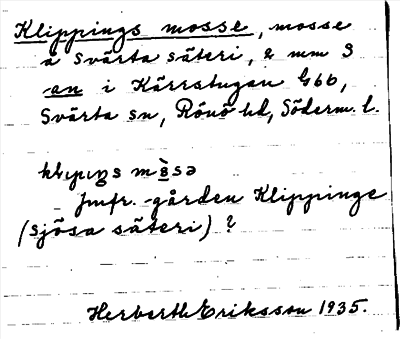 Klippings mosse, mosse
å Svärta säteri, 2 mm S
-en i Kärrstugan G6b,
Svärta sn, Rönö hd, Söderm. l.
Jmfr. gården Klippinge
(Sjösa säteri) ?
Herbert Eriksson 1935.